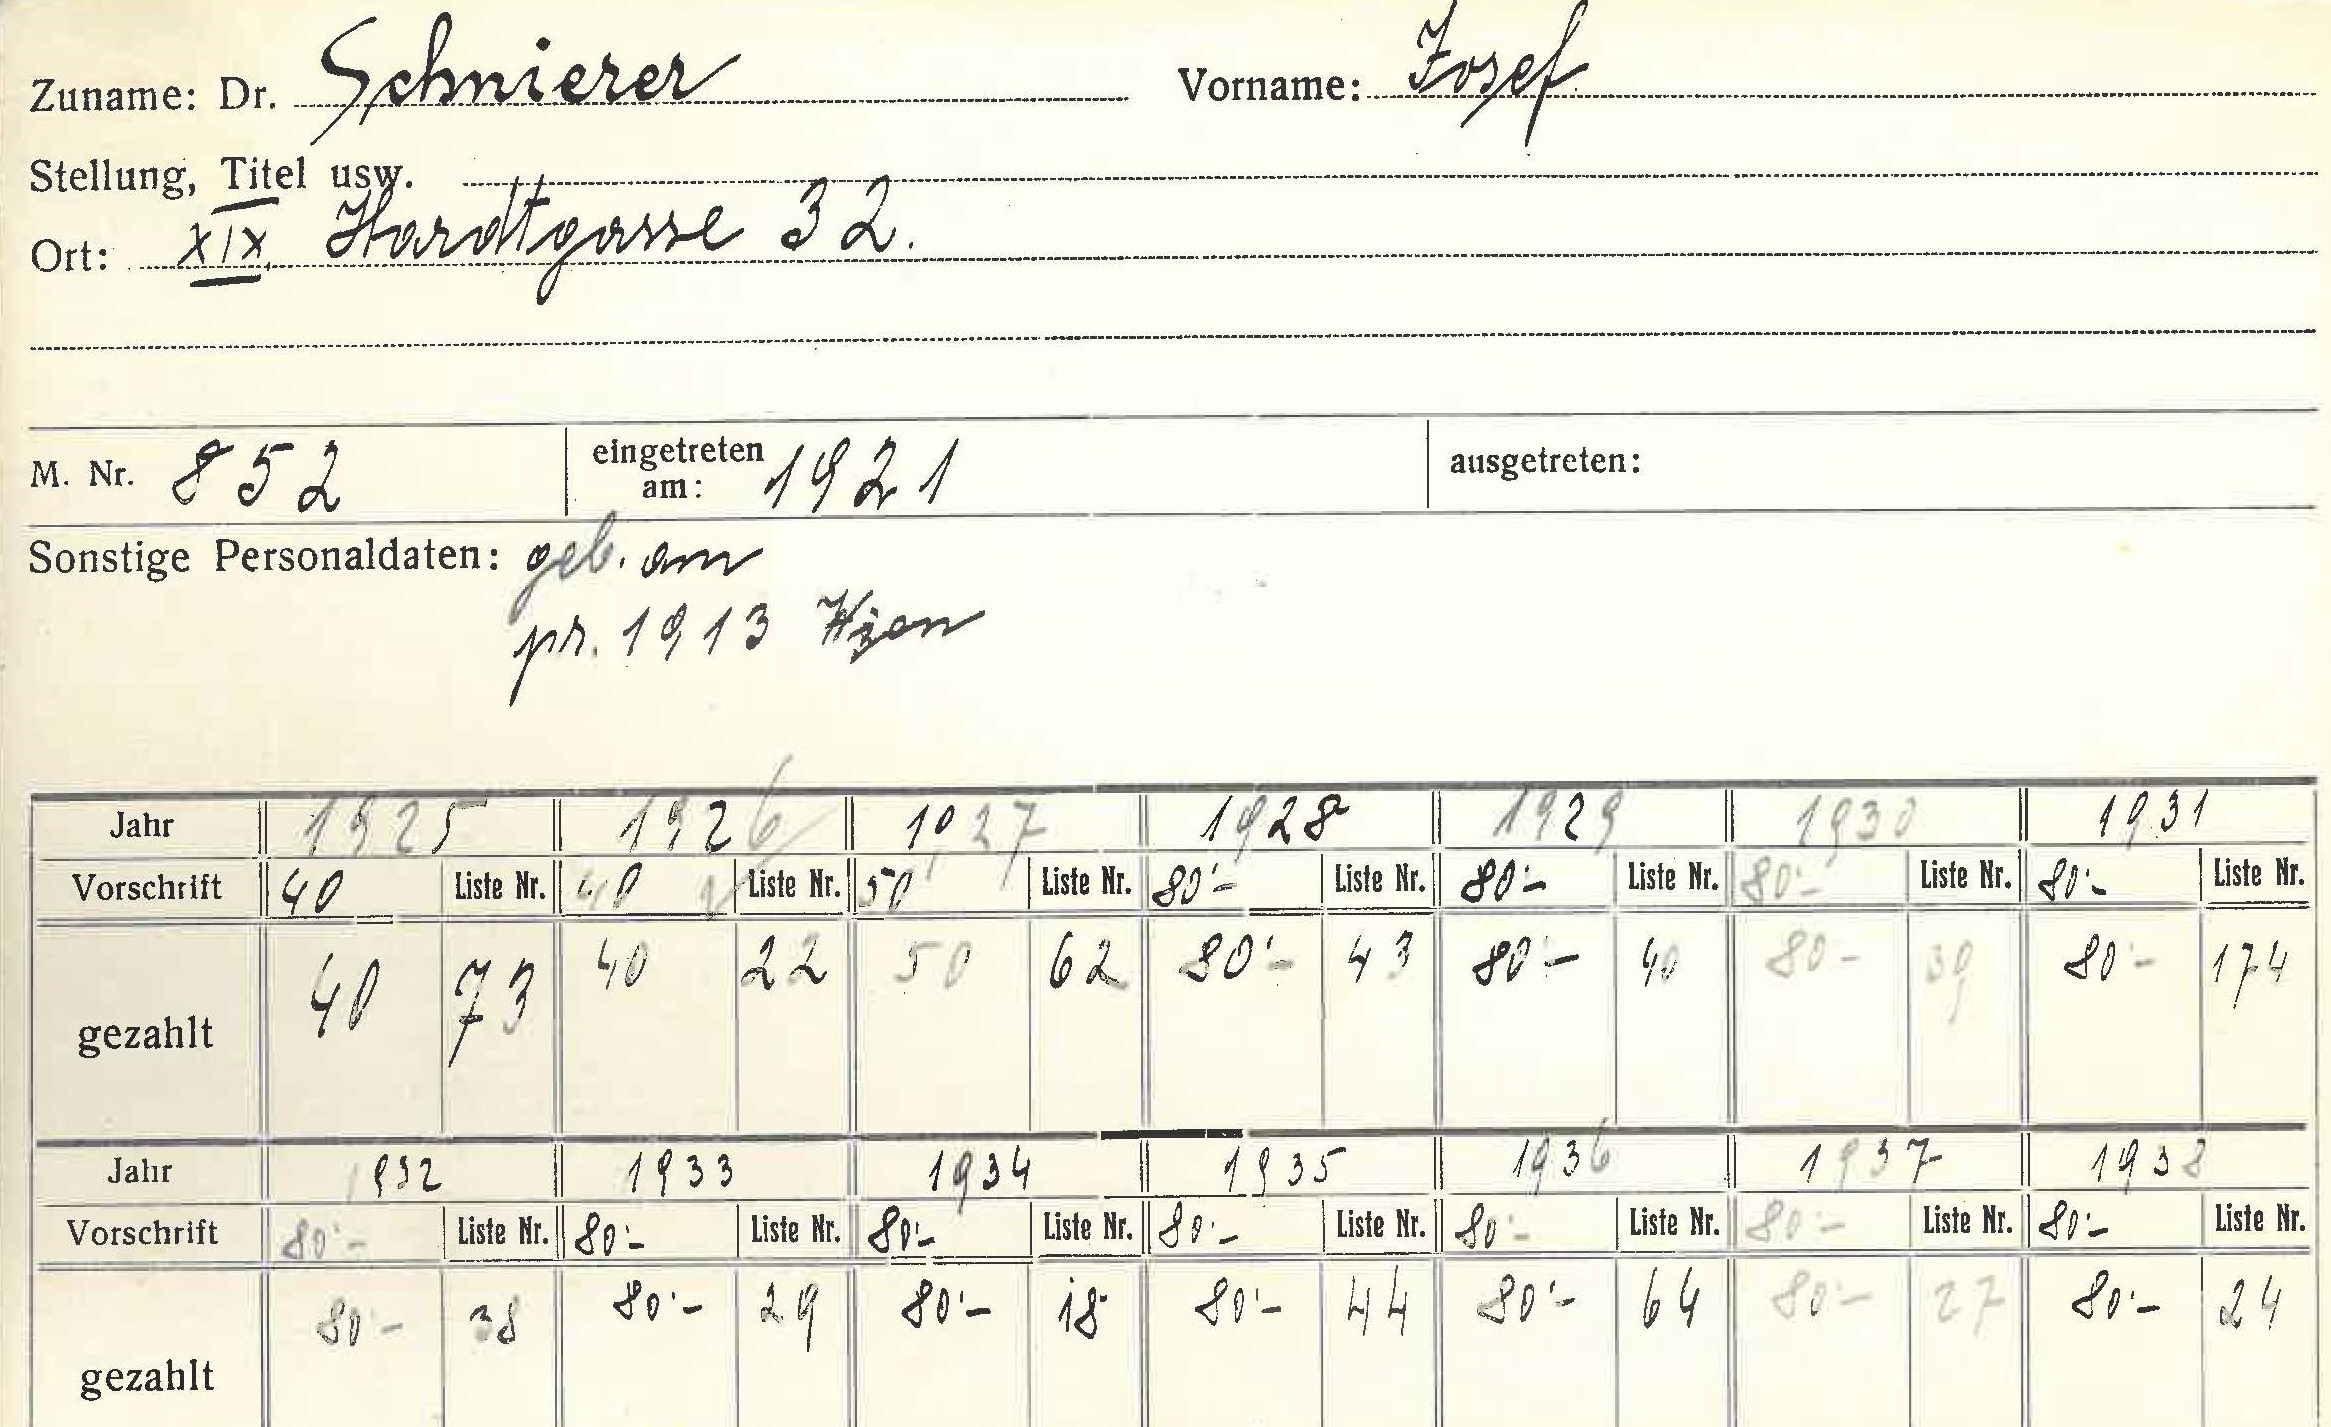 Zuname: Dr. Schnierer Vorname: Josef
Stellung, Titel usw.
Ort: XIX. Hardtgasse 32.
M. Nr. 852 eingetreten am: 1921 ausgetreten:
Sonstige Personaldaten: geb. am
pr. 1913 Wien
Jahr 1925 1926 1927 1928 1929 1930 1931
Vorschrift 40 Liste Nr. 40 Liste Nr. 50 Liste Nr. 80·- Liste Nr. 80·- Liste Nr. 80·- Liste Nr. 80·- Liste Nr.
gezahlt 40 73 40 22 50 62 80·- 43 80·- 40 80- 39 80·- 174
Jahr 1932 1933 1934 1935 1936 1937 1938
Vorschrift 80·- Liste Nr. 80·- Liste Nr. 80·- Liste Nr. 80·- Liste Nr. 80·- Liste Nr. 80·- Liste Nr. 80·- Liste Nr.
gezahlt 80·- 38 80·- 29 80·- 18 80·- 44 80·- 64 80·- 27 80·- 24